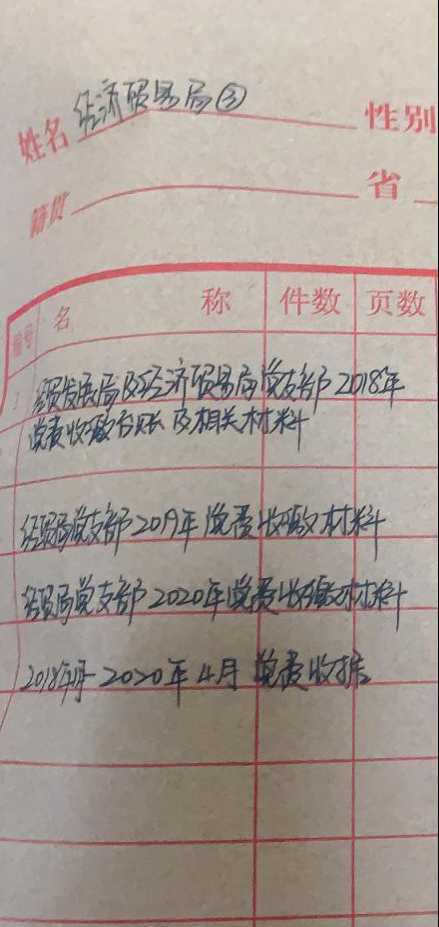 姓名 经济贸易局③ 性别
籍贯 省
编号 名 称 件数 页数
1 经贸发展局及经济贸易局党支部2018年
党费收缴台账及相关材料
经贸局党支部2019年党费收缴材料
经贸局党支部2020年党费收缴材料
2018年 2020年4月 党费收据